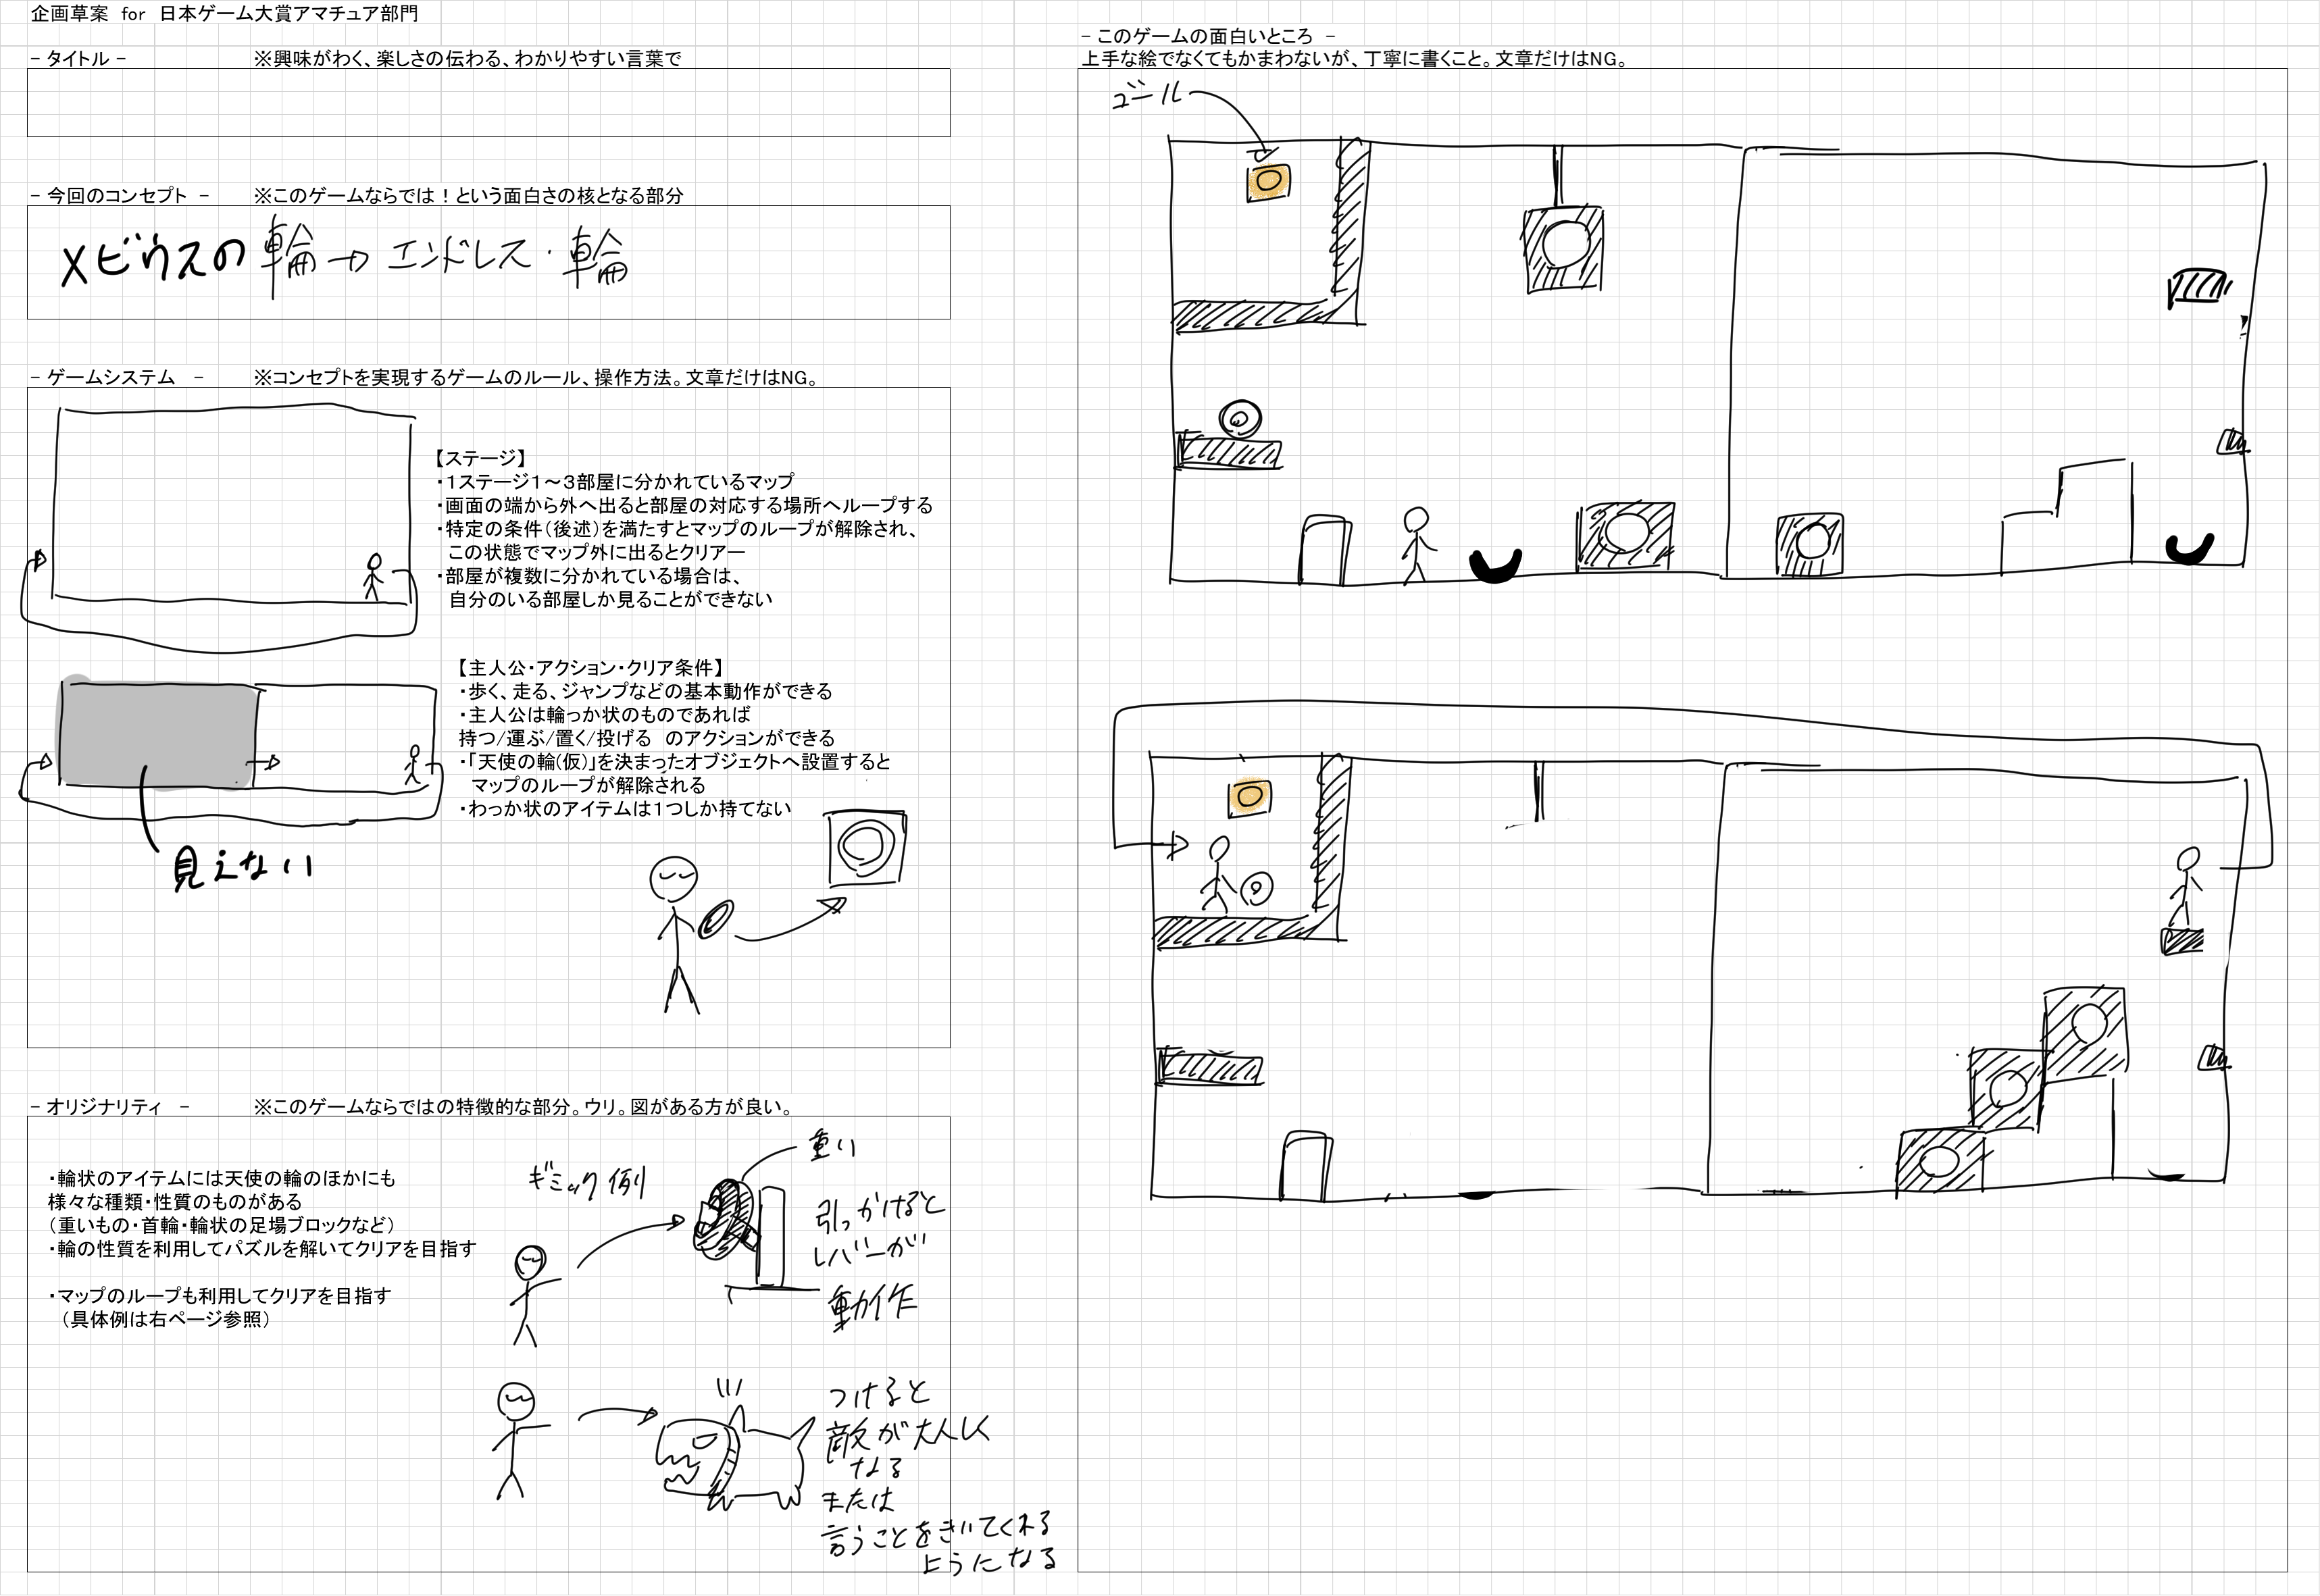 企画草案 for 日本ゲーム大賞アマチュア部門
- タイトル - ※興味がわく、楽しさの伝わる、わかりやすい言葉で
- 今回のコンセプト - ※このゲームならでは！という面白さの核となる部分
メビウスの輪→エンドレス・輪
- ゲームシステム - ※コンセプトを実現するゲームのルール、操作方法。文章だけはNG。
【ステージ】
・1ステージ1～3部屋に分かれているマップ
・画面の端から外へ出ると部屋の対応する場所へループする
・特定の条件（後述）を満たすとマップのループが解除され、
この状態でマップ外に出るとクリアー
・部屋が複数に分かれている場合は、
自分のいる部屋しか見ることができない
見えない
【主人公・アクション・クリア条件】
・歩く、走る、ジャンプなどの基本動作ができる
・主人公は輪っか状のものであれば
持つ/運ぶ/置く/投げる のアクションができる
・「天使の輪(仮)」を決まったオブジェクトへ設置すると
マップのループが解除される
・わっか状のアイテムは1つしか持てない
- オリジナリティ - ※このゲームならではの特徴的な部分。ウリ。図がある方が良い。
・輪状のアイテムには天使の輪のほかにも
様々な種類・性質のものがある
（重いもの・首輪・輪状の足場ブロックなど）
・輪の性質を利用してパズルを解いてクリアを目指す
・マップのループも利用してクリアを目指す
（具体例は右ページ参照）
ギミック例
重い
引っかけると
レバーが
動作
つけると
敵が大人しく
なる
または
言うことをきいてくれる
ようになる
- このゲームの面白いところ -
上手な絵でなくてもかまわないが、丁寧に書くこと。文章だけはNG。
ゴール